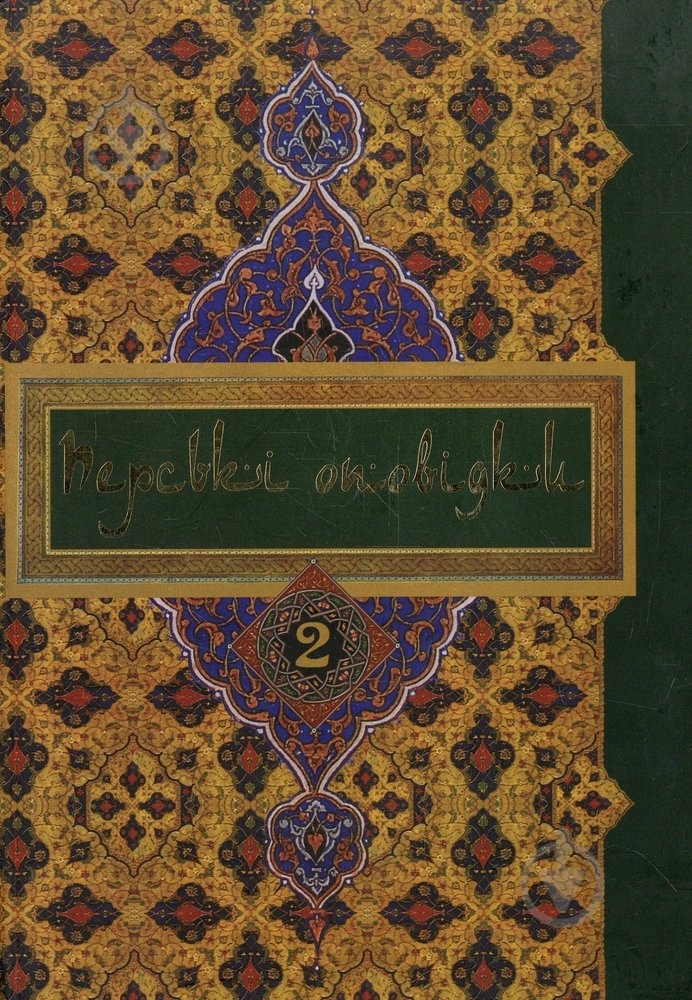 Перські оповідки
2